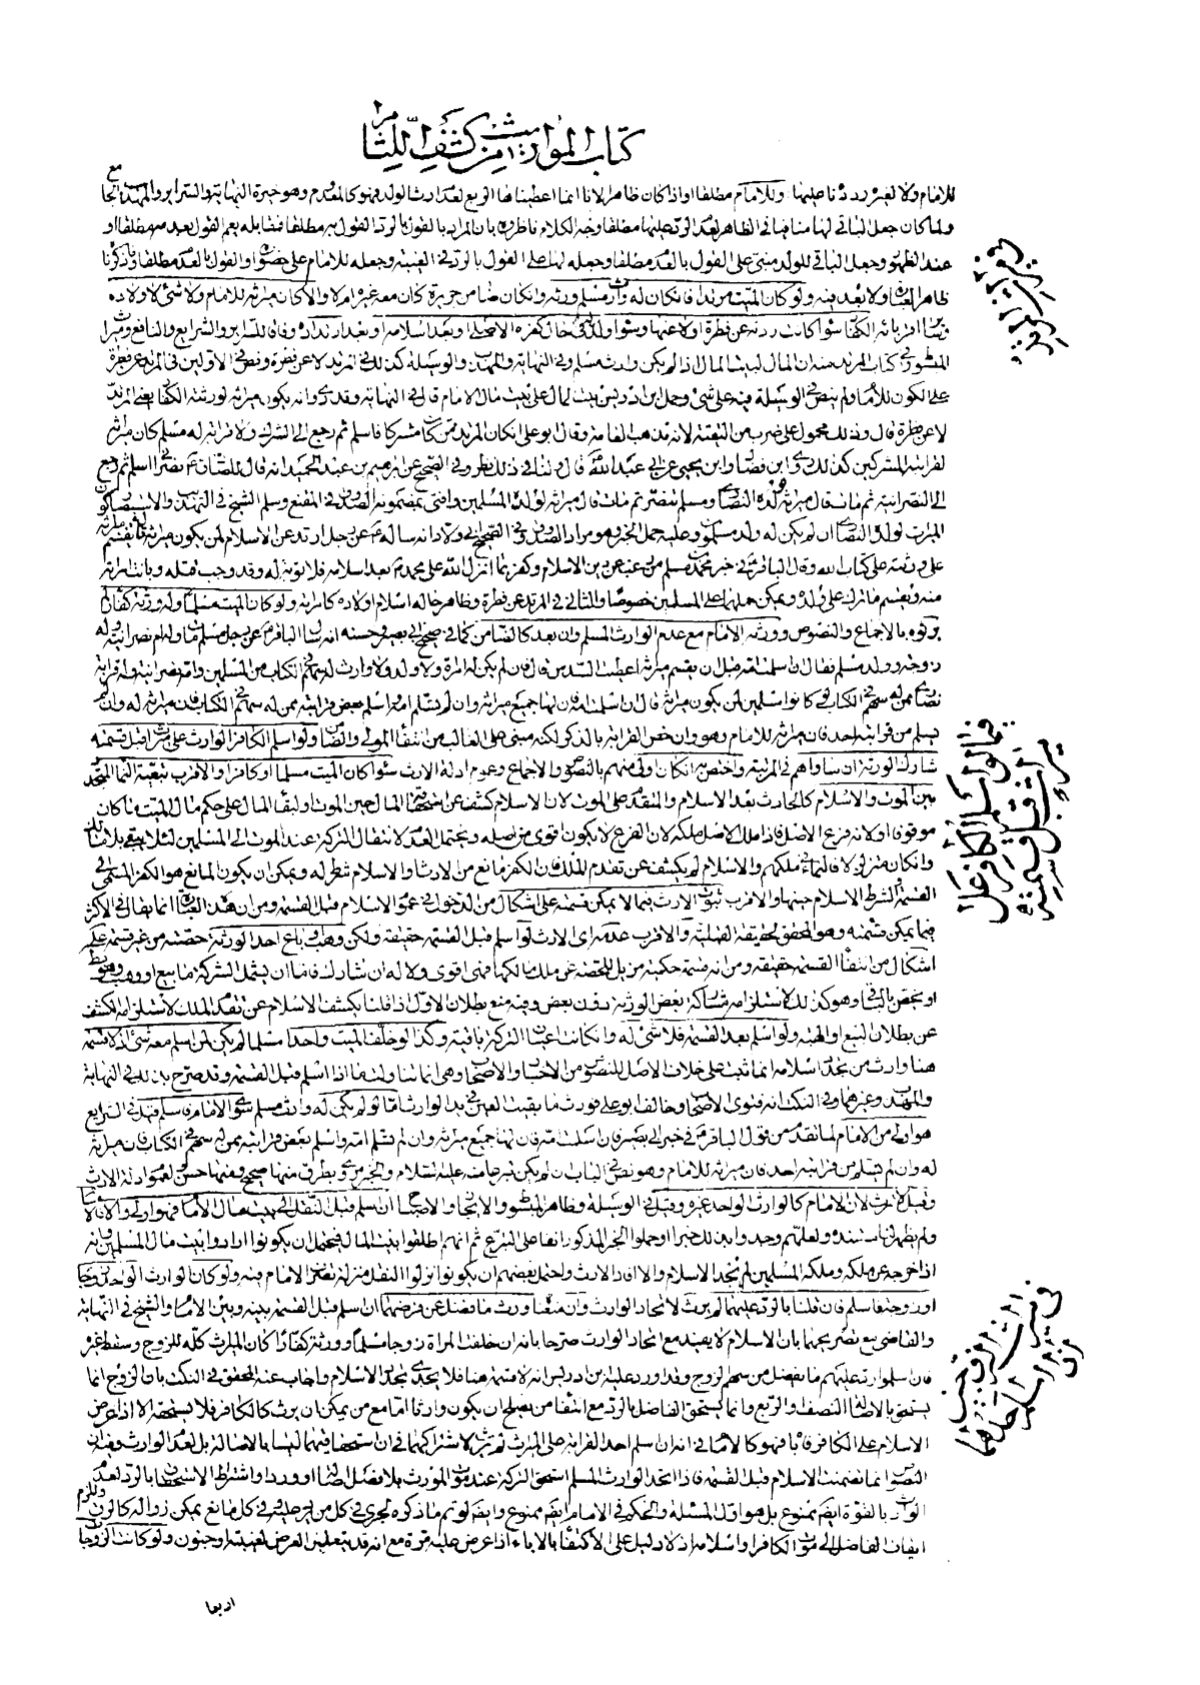 كتاب المواريث من كشف اللثام
للامام ولا لغيره رددنا عليها وللامام مطلقا او اذا كان ظاهرا لانا انما اعطيناها الربع لعدم ارث الولد فهو كالمعدوم وهو خيرة النهاية والسرائر والمهذب
ولما كان جعل الباقي لها منافيا في الظاهر لعدم الرد عليها مطلقا وجه الكلام ناظروه بان المراد بالقول بالرد القول به مطلقا فيقابله بعم القول بعدمه مطلقا او
عند الظهور وجعل الباقي للولد مبنى على القول بالعدم مطلقا وجعله لها على القول بالرد في الغيبة وجعله للامام على حضوره او القول بالعدم مطلقا وما ذكرنا
ظاهر العبارة ولا بعد فيه ولو كان الميت مرتدا فان كان له وارث مسلم ورثه وان كان ضامن جريرة كان معه غيره ام لا والا كان ميراثه للامام ولا شئ لاولاده
اقربائه الكفار سواء كانت ردته عن فطرة او لا عنها وسواء ولد في حال كفره الاصلي او بعد اسلامه او بعد ارتداده وفاقا للسرائر والشرايع والنافع
المبسوط في كتاب المرتد منه ان المال لبيت المال اذا لم يكن وارث مسلم وفي النهاية والمهذب والوسيلة كذلك في المرتد لا عن فطرة ونص في الاولين في المرتد عن فطرة
على الكون للامام ولم ينص في الوسيلة فيه على شئ وحمل ابن ادريس بيت المال على بيت مال الامام قال في النهاية وقد روى انه يكون ميراثه لورثته الكفار يعنى المرتد
لا عن فطرة قال وذلك محمول على ضرب من التقية لانه مذهب العامة وقال ابو على ان كان المرتد ممن كان مشركا فاسلم ثم رجع الى الشرك ولا قرابة له مسلم كان ميراثه
لقرابته المشركين كذلك روى ابن فضال وابن يحيى عن ابى عبد الله قال ولنا في ذلك نظر وفي الصحيح عن ابرهيم بن عبد الحميد انه قال للصادق ع نصرانى اسلم ثم رجع
الى النصرانية ثم مات قال ميراثه لولده النصارى ومسلم تنصر ثم مات قال ميراثه لولده المسلمين وافتى بمضمونه الصدوق في المقنع وسلم الشيخ في التهذيب والاستبصار كون
الميراث لولده النصارى ان لم يكن له ولد مسلمون وعليه حمل الخبر وهو مراد الصدوق وفي الصحيح ابى ولاد انه سأله ع عن رجل ارتد عن الاسلام لمن يكون ميراثه قال يقسم ميراثه
على ورثته على كتاب الله وقال الباقر ع في خبر محمد بن مسلم من رغب عن دين الاسلام وكفر بما انزل الله على محمد ص بعد اسلامه فلا توبة له وقد وجب قتله وبانت امرأته
منه ويقسم ما ترك على ولده ويمكن حملهما على المسلمين خصوصا والثانى في المرتد عن فطرة وظاهر حاله اسلام اولاده كامرأته ولو كان الميت مسلما وله ورثة كفار لم
يرثوه بالاجماع والنصوص وورثه الامام مع عدم الوارث المسلم وان بعد كالضامن كما في صحيح ابى بصير وحسنه انه سال الباقر ع عن رجل مسلم مات وله ام نصرانية وله
زوجة وولد مسلم فقال ان اسلمت امه قبل ان يقسم ميراثه اعطيت السدس قال فان لم يكن له امراة ولا ولد ولا وارث له سهم في الكتاب من المسلمين وامه نصرانية وله قرابة
نصارى ممن له سهم في الكتاب لو كانوا مسلمين لمن يكون ميراثه قال ان اسلمت امه فان لها جميع ميراثه وان لم تسلم امه واسلم بعض قرابته ممن له سهم في الكتاب فان ميراثه له وان لم
يسلم من قرابته احد فان ميراثه للامام وهو وان خص القرابة بالذكر لكنه مبنى على الغالب من انتفاء المولى والضامن ولو اسلم الكافر الوارث على ميراث قبل قسمته
شارك الورثة ان ساواهم في المرتبة واختص به ان كان اولى منهم بالنصوص والاجماع وعموم ادلة الارث سواء كان الميت مسلما او كافرا والاقرب تبعية النماء المتجدد
بين الموت والاسلام كالحادث بعد الاسلام والمتقدم على الموت لان الاسلام كشف عن استحقاق المال حين الموت او لبقاء المال على حكم مال الميت ما كان
موقوفا ولانه فرع الاصل فاذا ملك الاصل ملكه لان الفرع لا يكون اقوى من اصله ويحتمل العدم لانتقال التركة عند الموت الى المسلمين لئلا يبقى بلا مالك
وان كان متزلزلا فالنماء في ملكهم والاسلام لم يكشف عن تقدم الملك فان الكفر مانع من الارث او الاسلام شرط له ويمكن ان يكون المانع هو الكفر المستمر الى
القسمة او الشرط الاسلام حينها والاقرب ثبوت الارث فيما لا يمكن قسمته على اشكال من الدخول في عموم الاسلام قبل القسمة ومن ان هذه العبارة انما يقال في الاكثر
فيما يمكن قسمته وهو المحقق لحقيقة القبلية والاقرب عدمه اى الارث لو اسلم قبل القسمة حقيقة ولكن وهب او باع احد الورثة حصته من غير قسمة على
اشكال من انتفاء القسمة حقيقة ومن انه قسمة حكمية مزيل للحصة عن ملك مالكها فهى اقوى ولا له ان شارك فاما ان يشمل الشركة ما بيع او وهب وهو يبطل
او يختص بالباقى وهو كذلك لاستلزامه مشاركة بعض الورثة دون بعض وفيه منع بطلان الاول اذا قلنا بكشف الاسلام عن تقدم الملك لاستلزامه الكشف
عن بطلان البيع او الهبة ولو اسلم بعد القسمة فلا شئ له وان كانت اعيان التركة باقية وكذا لو خلف الميت واحدا مسلما لم يكن لمن اسلم معه شئ اذ لا قسمة
هنا وارث من تجدد اسلامه انما ثبت على خلاف الاصل للنصوص من الاخبار والاصحاب وهى انما بنا اذا اسلم قبل القسمة وقد صرح بذلك في النهاية
والمهذب وغيرهما وفي النكت انه فتوى الاصحاب وخالف ابو على فورث ما بقيت العين في يد الوارث اما لو لم يكن له وارث مسلم سوى الامام فاسلم فهل في الشرايع
هو اولى من الامام لما تقدم من قول الباقر ع في خبر ابى بصير فان اسلمت امه فان لها جميع ميراثه وان لم تسلم امه واسلم بعض قرابته ممن له سهم في الكتاب فان ميراثه
له وان لم يسلم من قرابته احد فان ميراثه للامام وهو نص في الباب ان لم يكن تبرعا منه عليه السلام والخبر مروى بطرق منها صحيح ومنها حسن لعموم ادلة الارث
وقيل لا يرث لان الامام كالوارث الواحد غيره وقيل في الوسيلة وظاهر المبسوط والايجاز والاصباح ان اسلم قبل النقل الى بيت مال الامام فهو اولى والا فلا
ولم يظهر لنا مستنده ولعلهم وجدوا بذلك خبرا او حملوا الخبر المذكور انفا على التبرع ثم انهم اطلقوا بيت المال فيحتمل ان يكونوا ارادوا بيت مال المسلمين وانه
اذا خرج عن ملكه وملكه المسلمين لم يجد الاسلام والا افاد الارث واحتمل بعضهم ان يكونوا نزلوا النقل منزلة تصرف الامام فيه ولو كان الوارث الواحد زوجا
او زوجة فاسلم فان قلنا بالرد عليهما لم يرث لاتحاد الوارث وان منعنا ورث ما فضل عن فرضهما ان اسلم قبل القسمة بينه وبين الامام والشيخ في النهاية
والقاضى مع تصريحهما بان الاسلام لا يفيد مع اتحاد الوارث صرحا بانه ان خلفت المراة زوجا مسلما وورثة كفارا كان الميراث كله للزوج وسقط غيره
فان اسلموا رد عليهم ما يفضل من سهم الزوج وقد اورد عليه ابن ادريس انه لا قسمة هنا فلا يجدى تجدد الاسلام واجاب عنه المحقق في النكت بان الزوج انما
يستحق بالاصالة النصف والربع وانما يستحق الفاضل بالرد مع انتفاء من يصلح ان يكون وارثا اما مع من يمكن ان يرث كالكافر فلا يستحقه الا اذا عرض
الاسلام على الكافر فابى فهو كالامام في انه ان اسلم احد القرابة على الميراث لم يرث لاشتراكهما في ان استحقاقهما ليس بالاصالة بل لعدم الوارث وفيه ان
النصوص انما تضمنت الاسلام قبل القسمة فاذا اتحد الوارث المسلم استحق التركة عند موت المورث بلا فصل اصالة او ردا واشتراط الاستحقاق بالرد لعدم
الوارث بالقوة ايضا ممنوع بل هو اول المسئلة والحكم في الامام ايضا ممنوع وايضا لو تم ما ذكره لجرى في كل من لم يرد وفي كل مانع يمكن زواله كالرق وللزم
ايقاف الفاضل الى موت الكافر او اسلامه اذ لا دليل على الاكتفاء بالاباء اذا عرض عليه مرة مع انه قد يتعذر العرض لغيبة او جنون ولو كانت الزوجات
اربعا
فيما لو اسلم الكافر على
ميراث قبل قسمته